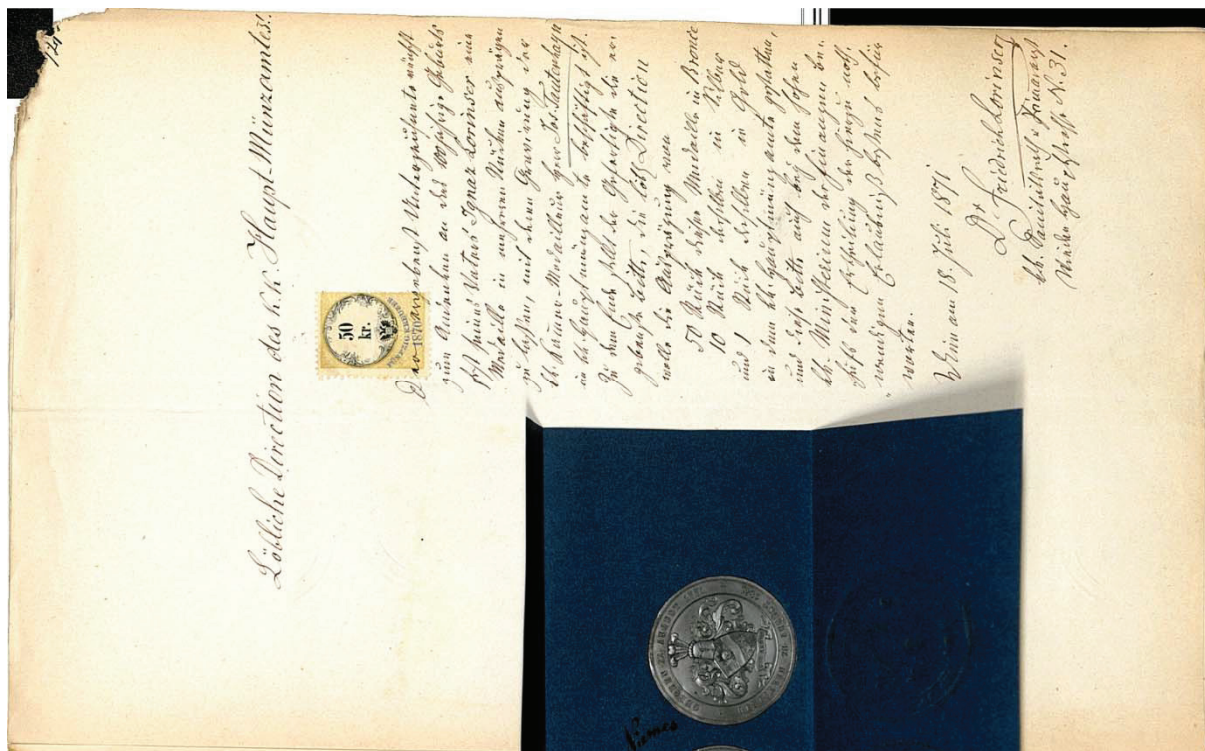 124
Löbliche Direction des k.k. Haupt-Münzamtes!
50
kr.
1870
Der ergebenst Unterzeichnete wünscht
zum Andenken an das 100jährige Geburts
fest seines Vaters Ignaz Lorinser eine
Medaille in mehreren Stücken ausprägen
zu lassen, mit deren Gravirung der
kk Kammer-Medailleur Herr Jos Tautenhayn
im kk Hauptmünzamte beschäftigt ist.
Zu dem Ende stellt der Gefertigte die er-
gebenste Bitte, die löbl Direction
wolle die Ausprägung von
50 Stück dieser Medaille in Bronce
10 Stück derselben in Silber
und 1 Stück derselben in Gold
in dem kk Hauptmünzamte gestatten,
und diese Bitte auch bei dem hohen
kk Ministerium der Finanzen be-
hufs der Ertheilung der hiezu noth-
wendigen Erlaubniß bestens befür
worten.
Wien am 18. Juli 1871
Dr Friedrich Lorinser
kk. Sanitätsrath u Primararzt
Wieden Hauptstraße N. 31.
AUGUST
Niemes